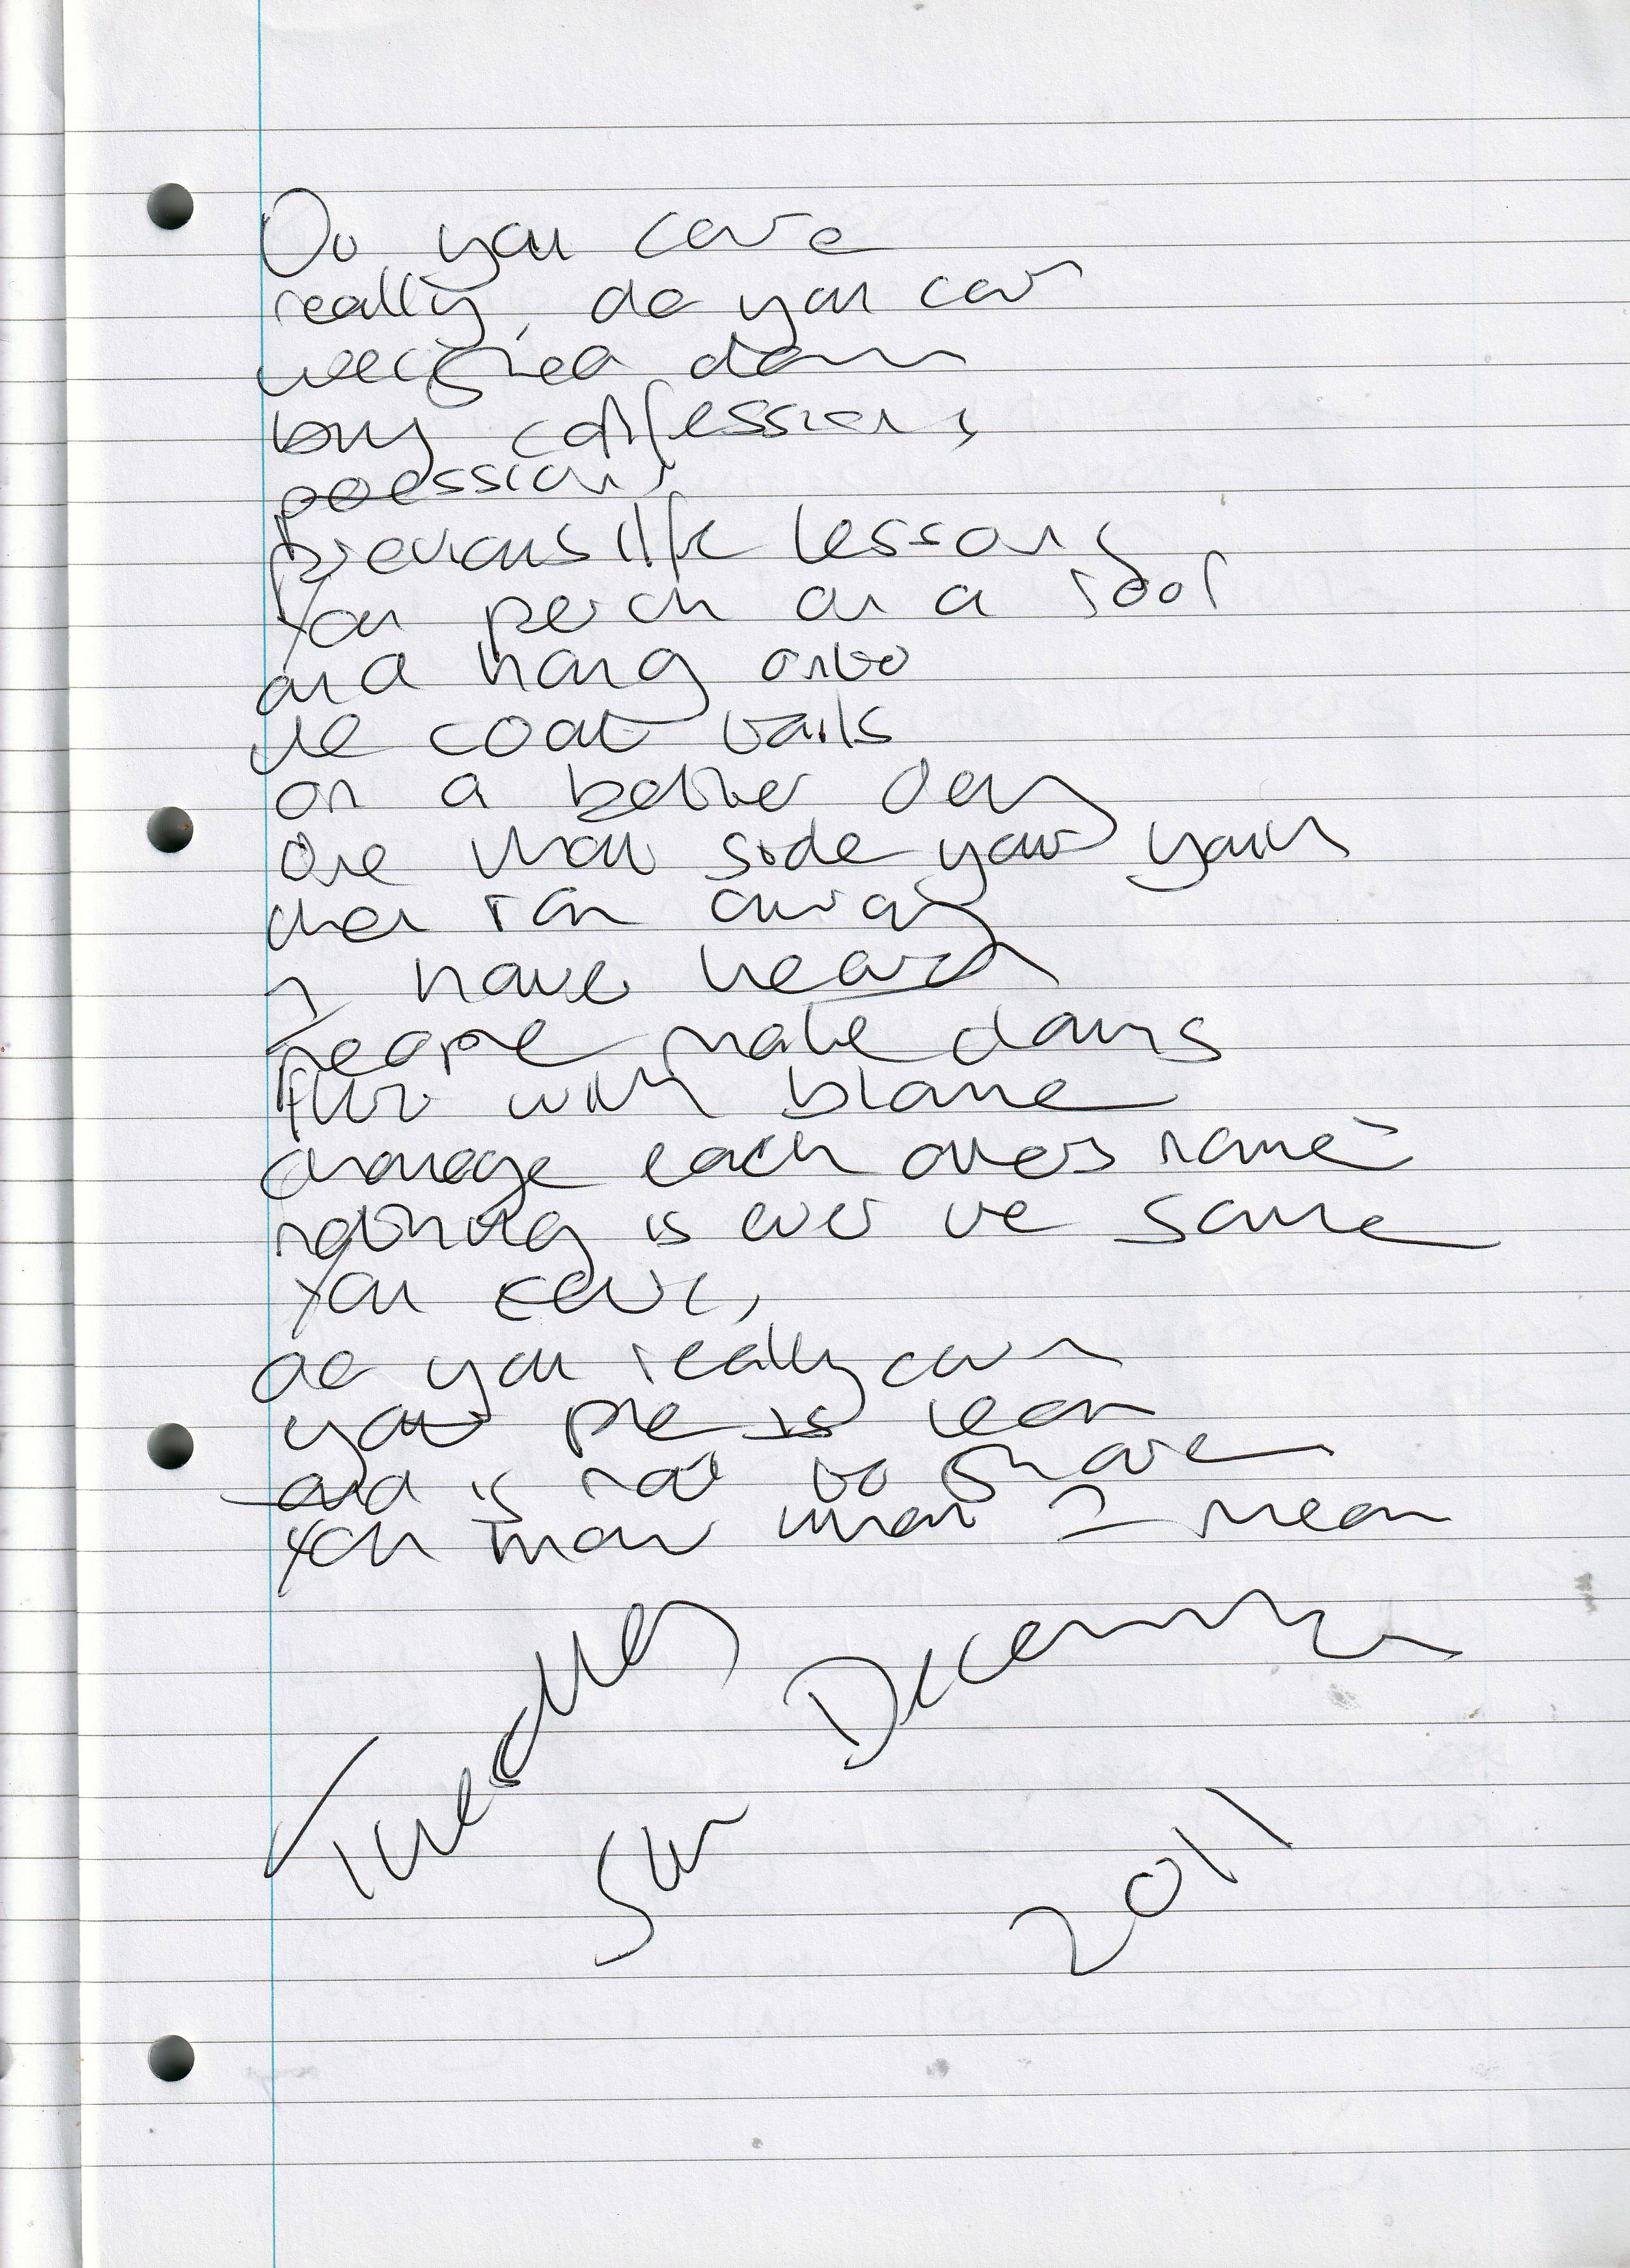 Do you care
really, do you care
weighed down
by confessions
possessions
previous life lessons
You perch on a roof
and hang onto
the coat tails
on a better day
One that stole your
then ran away
I have heard
people make claims
flirt with blame
change each others names
nothing is ever the same
You care,
do you really care
your pie is lean
and is not to share
You know what I mean
Tuesday
December
2011